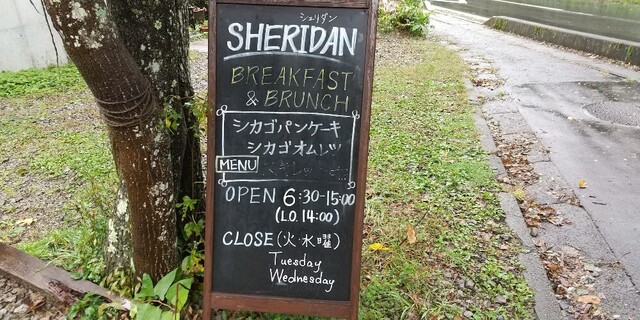 シェリダン
SHERIDAN
BREAKFAST
& BRUNCH
シカゴパンケーキ
シカゴオムレツ
MENU
OPEN 6:30-15:00
(L.O. 14:00)
CLOSE (火・水曜)
Tuesday
Wednesday